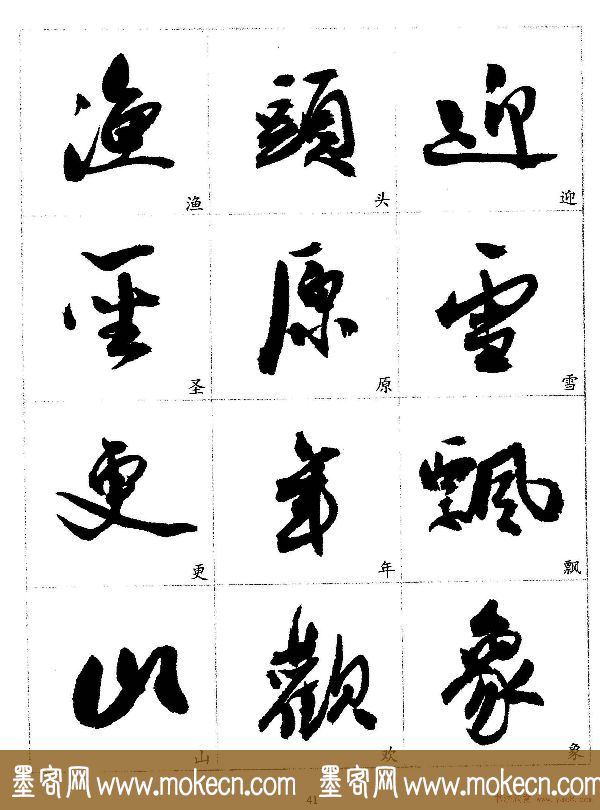 漁 頭 迎
渔 头 迎
聖 原 雪
圣 原 雪
更 年 飄
更 年 飘
山 歡 象
山 欢 象
墨客网 www.mokecn.com 墨客网 www.mokecn.com
41